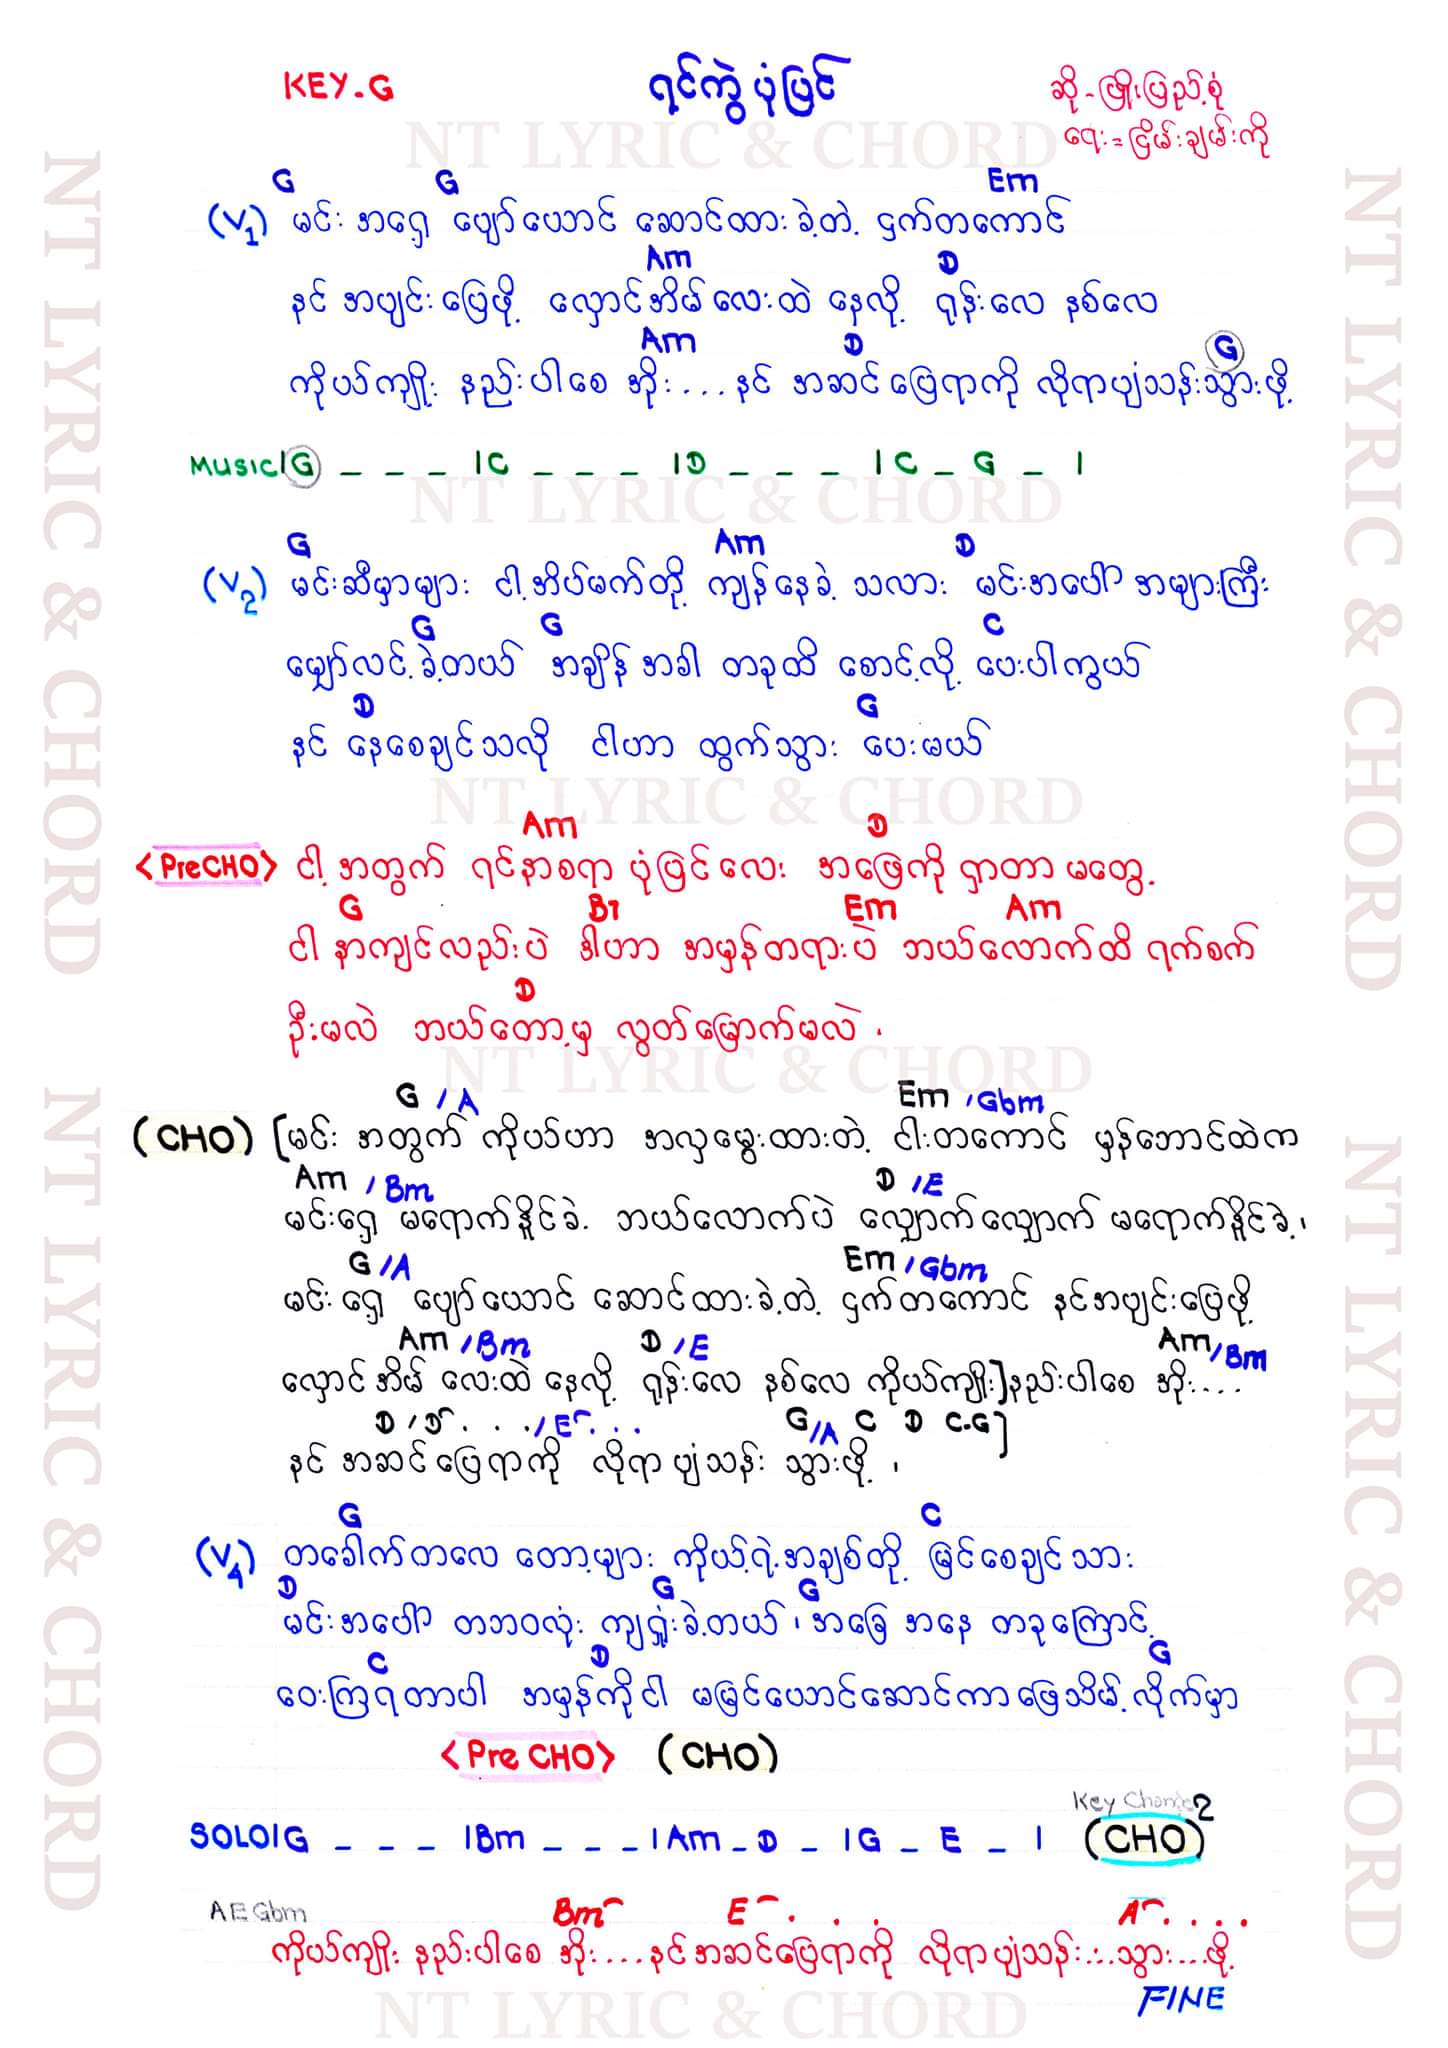 KEY-G
ရင်ကွဲပုံပြင်
ဆို - ဖြိုးပြည့်စုံ
ရေး = ငြိမ်းချမ်းကို
NT LYRIC & CHORD
G G Em
(V1) မင်း အရှေ့ ပျော်ယောင် ဆောင်ထားခဲ့တဲ့ ငှက်တကောင်
Am D
နင် အပျင်းပြေဖို့ လှောင်အိမ်လေးထဲ နေလို့ ရုန်းလေ နစ်လေ
Am D G
ကိုယ်ကျိုး နည်းပါစေ အိုး... နင် အဆင်ပြေရာကို လိုရာပျံသန်းသွားဖို့
Music|G _ _ _ |C _ _ _ |D _ _ _ |C _ G _ |
NT LYRIC & CHORD
G Am D
(V2) မင်းဆီမှာများ ငါ့အိပ်မက်တို့ ကျန်နေခဲ့ သလား မင်းအပေါ် အများကြီး
G G C
မျှော်လင့်ခဲ့တယ် အချိန်အခါ တခုထိ စောင့်လို့ ပေးပါကွယ်
D G
နင် နေစေချင်သလို ငါဟာ ထွက်သွား ပေးမယ်
NT LYRIC & CHORD
Am D
<PreCHO> ငါ့အတွက် ရင်နာစရာ ပုံပြင်လေး အဖြေကို ရှာတာ မတွေ့
G B7 Em Am
ငါ နာကျင်လည်းပဲ ဒါဟာ အမှန်တရားပဲ ဘယ်လောက်ထိ ရက်စက်
D
ဦးမလဲ ဘယ်တော့မှ လွတ်မြောက်မလဲ ၊
NT LYRIC & CHORD
G /A Em /Gbm
(CHO) [မင်း အတွက် ကိုယ်ဟာ အလှမွေးထားတဲ့ ငါးတကောင် မှန်ဘောင်ထဲက
Am /Bm D /E
မင်းရှေ့ မရောက်နိူင်ခဲ့ ဘယ်လောက်ပဲ လျှောက်လျှောက် မရောက်နိူင်ခဲ့၊
G/A Em /Gbm
မင်းရှေ့ ပျော်ယောင် ဆောင်ထားခဲ့တဲ့ ငှက်တကောင် နင်အပျင်းပြေဖို့
Am /Bm D /E Am/Bm
လှောင်အိမ် လေးထဲ နေလို့ ရုန်းလေ နစ်လေ ကိုယ်ကျိုး]နည်းပါစေ အိုး....
D / D . . . /E . . . G/A C D C-G]
နင် အဆင်ပြေရာကို လိုရာပျံသန်း သွားဖို့ ၊
G C
(V4) တခေါက်တလေ တော့များ ကိုယ့်ရဲ့အချစ်တို့ မြင်စေချင်သား
D G G
မင်းအပေါ် တဘဝလုံး ကျရှုံးခဲ့တယ် ၊ အခြေ အနေ တခုကြောင့်
C D G
ဝေးကြရတာပါ အမှန်ကိုငါ မမြင်ယောင်ဆောင်ကာဖြေသိမ့်လိုက်မှာ
<Pre CHO> (CHO)
Key Change
SOLO|G _ _ _ |Bm _ _ _ |Am _ D _ |G _ E _ | (CHO)2
A E Gbm Bm E . . . A . . . .
ကိုယ်ကျိုး နည်းပါစေ အိုး....နင်အဆင်ပြေရာကို လိုရာပျံသန်း...သွား...ဖို့
FINE
NT LYRIC & CHORD
NT LYRIC & CHORD
NT LYRIC & CHORD
NT LYRIC & CHORD
NT LYRIC & CHORD